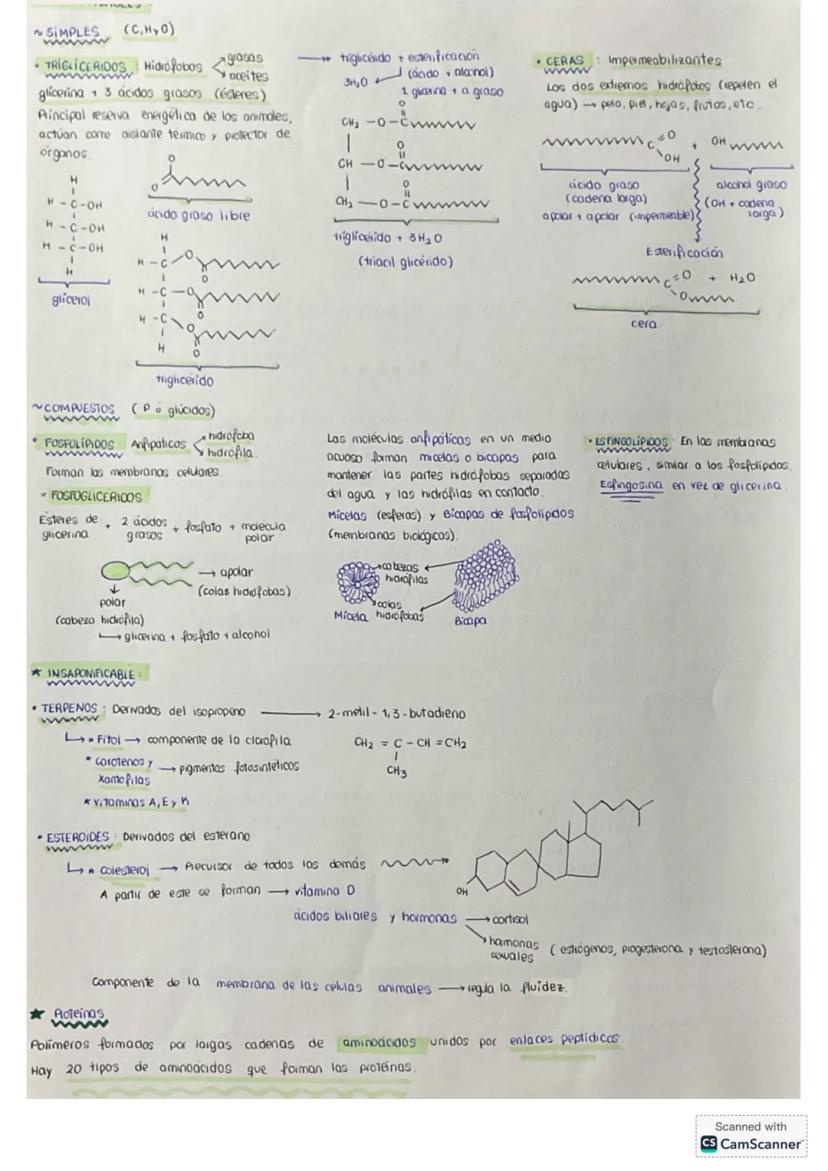 ~ SIMPLES (C, H y O)
• TRIGLICERIDOS : Hidrófobos grasas
aceites
glicerina + 3 ácidos grasos (ésteres)
Principal reserva energética de los animales,
actúan como aislante térmico y protector de
órganos.
H
H - C - OH
H - C - OH
H - C - OH
H
glicerol
O
O
ácido graso libre
H
H - C - O
O
H - C - O
O
H - C - O
H O
triglicerido
triglicérido + esterificación
3H2O (ácido + alcohol)
1 glicerina + a graso
O
CH2 - O - C
O
CH - O - C
O
CH2 - O - C
triglicerido + 3H2O
(triacil glicérido)
• CERAS : Impermeabilizantes
Los dos extremos hidrófobos (repelen el
agua) → pelo, piel, hojas, frutos, etc.
C = O + OH
OH
ácido graso alcohol graso
(cadena larga) (OH + cadena
larga)
apolar + apolar (impermeable)
Esterificación
C = O + H2O
O
cera
~ COMPUESTOS ( P o glúcidos)
• FOSFOLÍPIDOS Anfipáticos hidrófoba
hidrófila.
Forman las membranas celulares.
- FOSFOGLICERIDOS
Ésteres de + 2 ácidos + fosfato + molécula
glicerina grasos polar
→ apolar
(colas hidrófobas)
polar
(cabeza hidrófila)
→ glicerina + fosfato + alcohol
Las moléculas anfipáticas en un medio
acuoso forman micelas o bicapas para
mantener las partes hidrófobas separadas
del agua y las hidrófilas en contacto.
Micelas (esferas) y Bicapas de fosfolípidos
(membranas biológicas).
cabezas
hidrófilas
colas
hidrófobas
Micela Bicapa
• ESFINGOLÍPIDOS En las membranas
celulares, similar a los fosfolípidos.
Esfingosina en vez de glicerina.
★ INSAPONIFICABLE :
• TERPENOS : Derivados del isopropeno → 2-metil - 1,3 - butadieno
↳ * Fitol → componente de la clorofila
* carotenos y → pigmentos fotosintéticos
xantofilas
* vitaminas A, E y K
CH2 = C - CH = CH2
CH3
• ESTEROIDES : Derivados del esterano
↳ * Colesterol → Precursor de todos los demás
OH
A partir de este se forman → vitamina D
ácidos biliares y hormonas → cortisol
hormonas
sexuales ( estrógenos, progesterona y testosterona)
Componente de la membrana de las celulas animales → regula la fluidez.
★ Proteínas
Polímeros formados por largas cadenas de aminoácidos unidos por enlaces peptídicos.
Hay 20 tipos de aminoácidos que forman las proteínas.
Scanned with
CS CamScanner